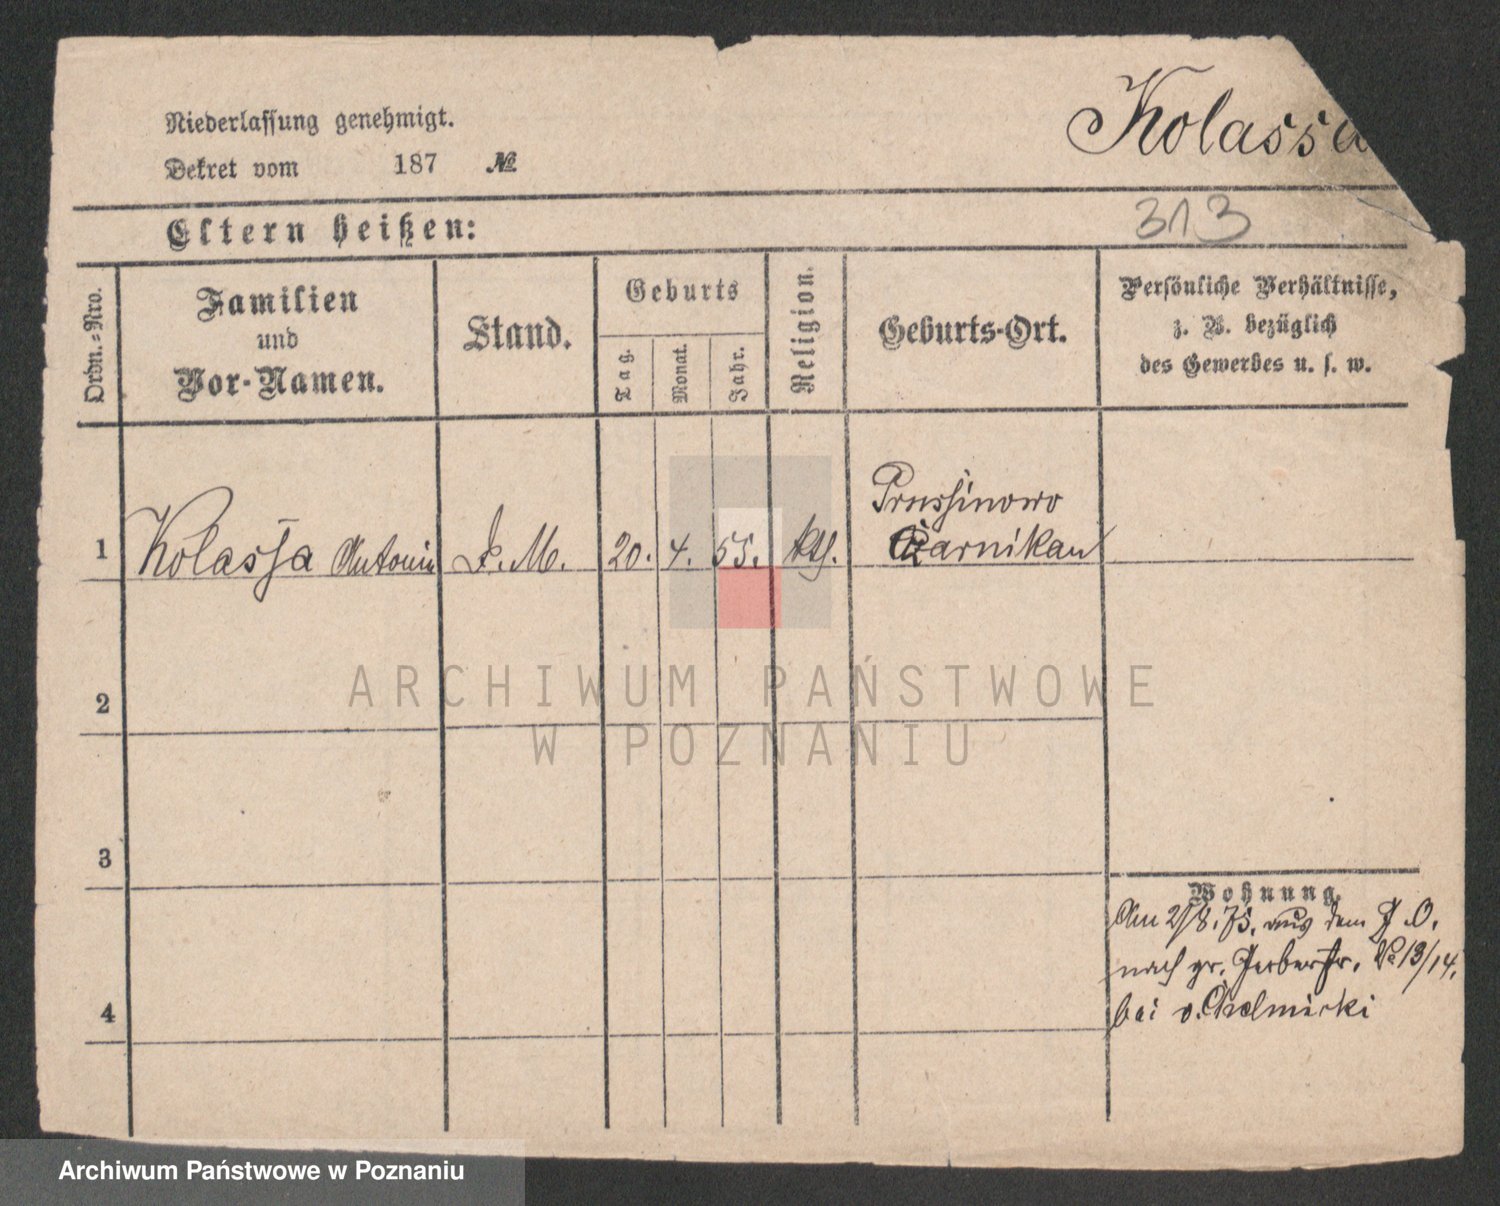 Niederlassung genehmigt.
Kolassa
Dekret vom 187 №
313
Eltern heißen:
Ordn.-Nro.
Familien
und
Vor-Namen.
Stand.
Geburts
Tag.
Monat.
Jahr.
Religion.
Geburts-Ort.
Persönliche Verhältnisse,
z. B. bezüglich
des Gewerbes u. s. w.
Prussinowo
1 Kolassa Antonin D. M. 20. 4. 55. kth. Czarnikau
2
ARCHIWUM PAŃSTWOWE
W POZNANIU
3
Wohnung.
Am 2/8. 75. aus dem J. O.
nach gr. Gerberstr. No 13/14.
4 bei v. Chelmicki
Archiwum Państwowe w Poznaniu